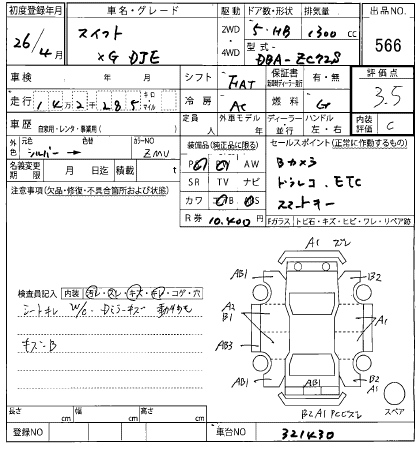 初度登録年月 車名・グレード 駆動 ドア数・形状 排気量 出品NO.
26/4月 スイフト XG DJE 2WD・4WD 5・HB 1300cc 566
型式 DBA-ZC72S
車検 年 月 シフト FAT 保証書 有・無 評価点 3.5
走行 142千285 キロ マイル 冷房 AC 燃料 G
車歴 自家用・レンタ・事業用( ) 定員 人 外車モデル ディーラー・並行 ハンドル 左・右 内装評価 C
外色 元色 シルバー → カラーNO ZMU 装備品 (純正品に限る) セールスポイント(正常に作動するもの)
名義変更期限 月 日迄 積載 t PS PW AW Bカメラ
SR TV ナビ ドラレコ、ETC
注意事項(欠品・修復・不具合箇所および状態) カワ スマートキー
R券 10,400円 Fガラス トビ石・キズ・ヒビ・ワレ・リペア跡
A1
AB1 B2
検査員記入 内装 汚レ・スレ・キズ・キレ・コゲ・穴
シートキレ
A2 B1 A1
キズB
AB3
AB1 AB1 B2 A1
B2A1
スペア
長さ cm 幅 cm 高さ cm
登録NO 車台NO 321430